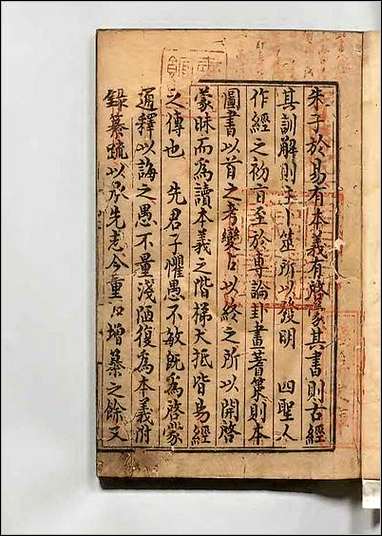 朱子於易有本義有啓蒙其書則古經
其訓解則主卜筮所以發明　四聖人
作經之初旨至於專論卦畫蓍策則本
圖書以首之考變占以終之所以開啓
蒙昧而爲讀本義之階梯大抵皆易經
之傳也　先君子懼愚不敏旣爲啓蒙
通釋以誨之愚不量淺陋復爲本義附
錄纂疏以承先志今重加增纂之餘又